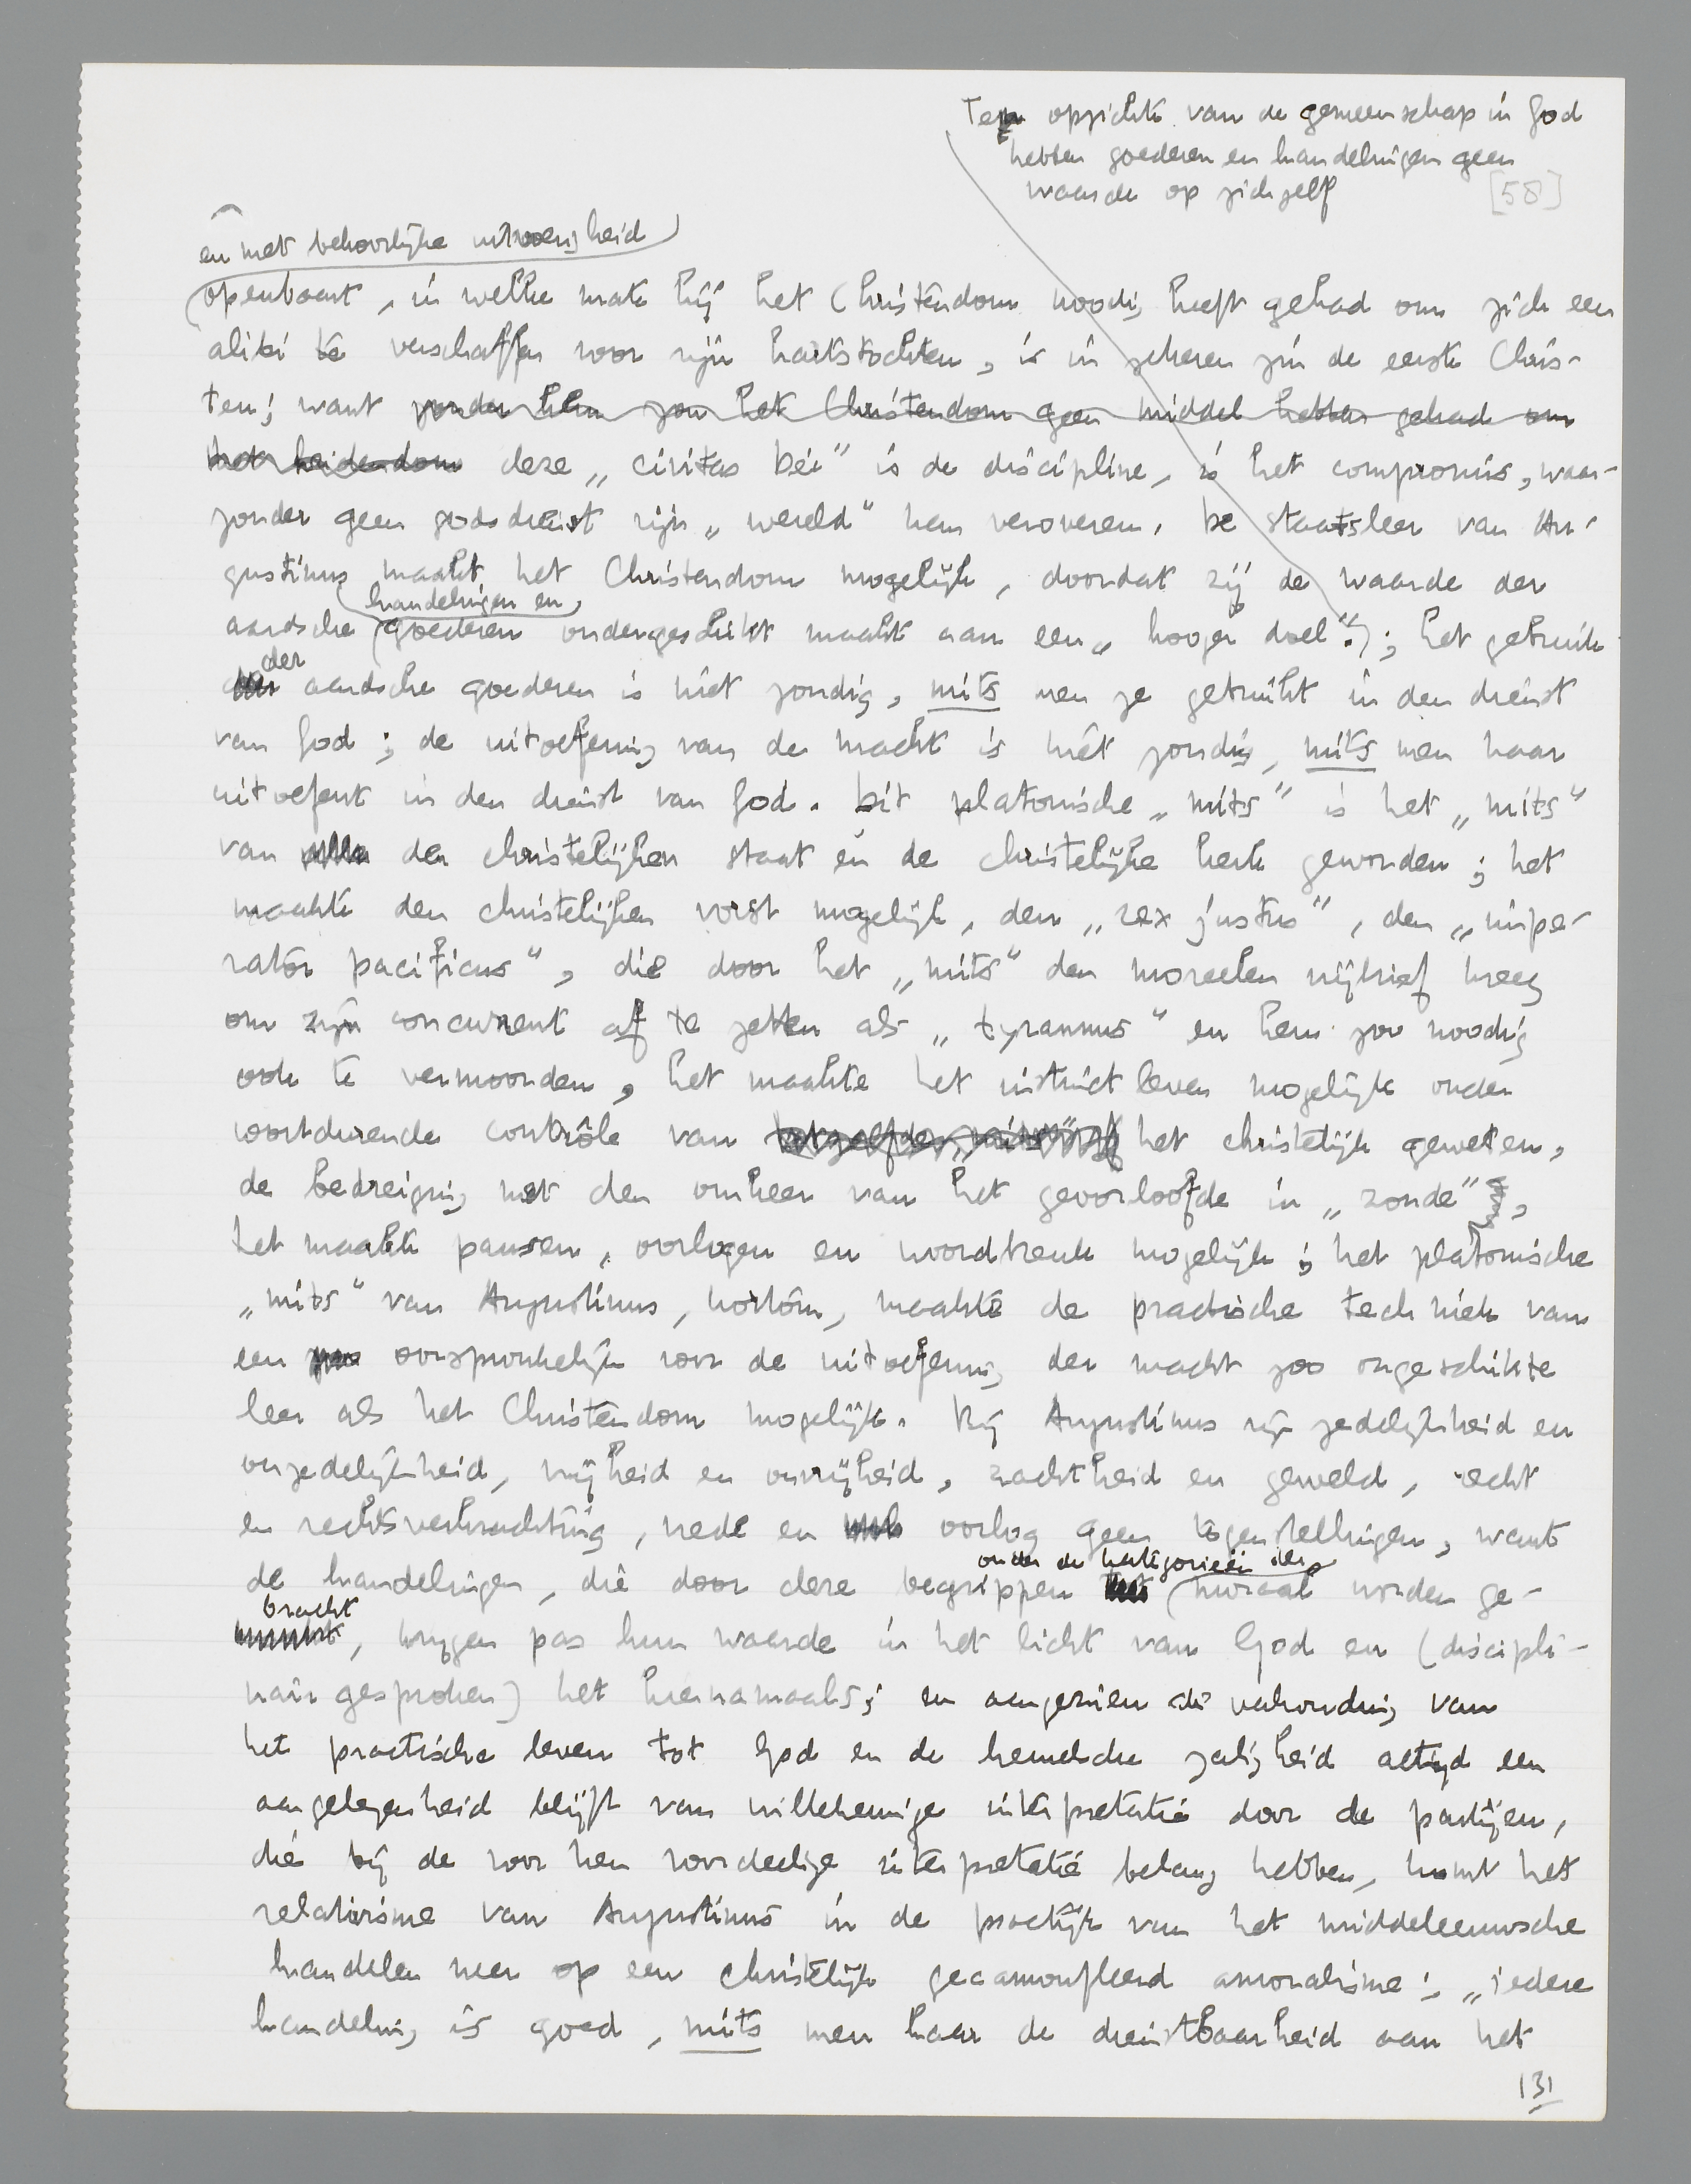 Ten opzichte van de gemeenschap in God
hebben goederen en handelingen geen
waarde op zichzelf
[58]
en met behoorlijke uitvoerigheid
openbaart, in welke mate hij het Christendom noodig heeft gehad om zich een
alibi te verschaffen voor zijn hartstochten, is in zekeren zin de eerste Chris-
ten; want zonder hem zou het Christendom geen middel hebben gehad om
het heidendom deze „civitas Dei” is de discipline, is het compromis, waar-
zonder geen godsdienst zijn „wereld” kan veroveren. De staatsleer van Au-
gustinus maakt het Christendom mogelijk, doordat zij de waarde der
handelingen en
aardsche goederen ondergeschikt maakt aan een „hooger doel”.); het gebruik
der
aardsche goederen is niet zondig, mits men ze gebruikt in den dienst
van God; de uitoefening van de macht is niet zondig, mits men haar
uitoefent in den dienst van God. Dit platonische „mits” is het „mits”
van alle den christelijken staat en de christelijke kerk geworden; het
maakte den christelijken vorst mogelijk, den „rex justus”, den „impe-
rator pacificus”, die door het „mits” den moreelen vrijbrief kreeg
om zijn concurrent af te zetten als „tyrannus” en hem zoo noodig
ook te vermoorden, het maakte het instinctleven mogelijk onder
voortdurende contrôle van het christelijk geweten,
de bedreiging met den omkeer van het geoorloofde in „zonde”,
het maakte pausen, oorlogen en woordbreuk mogelijk; het platonische
„mits” van Augustinus, kortom, maakte de practische techniek van
een oorspronkelijk voor de uitoefening der macht zoo ongeschikte
leer als het Christendom mogelijk. Bij Augustinus zijn zedelijkheid en
onzedelijkheid, vrijheid en onvrijheid, zachtheid en geweld, recht
en rechtsverkrachting, vrede en oorlog geen tegenstellingen, want
onder de kategorieën der
de handelingen, die door deze begrippen moraal worden ge-
bracht
, krijgen pas hun waarde in het licht van God en (discipli-
nair gesproken) het hiernamaals; en aangezien de verhouding van
het practische leven tot God en de hemelsche zaligheid altijd een
aangelegenheid blijft van willekeurige interpretatie door de partijen,
die bij de voor hen voordeelige interpretatie belang hebben, komt het
relativisme van Augustinus in de practijk van het middeleeuwsche
handelen neer op een christelijk gecamoufleerd amoralisme: „iedere
handeling is goed, mits men haar de dienstbaarheid aan het
131